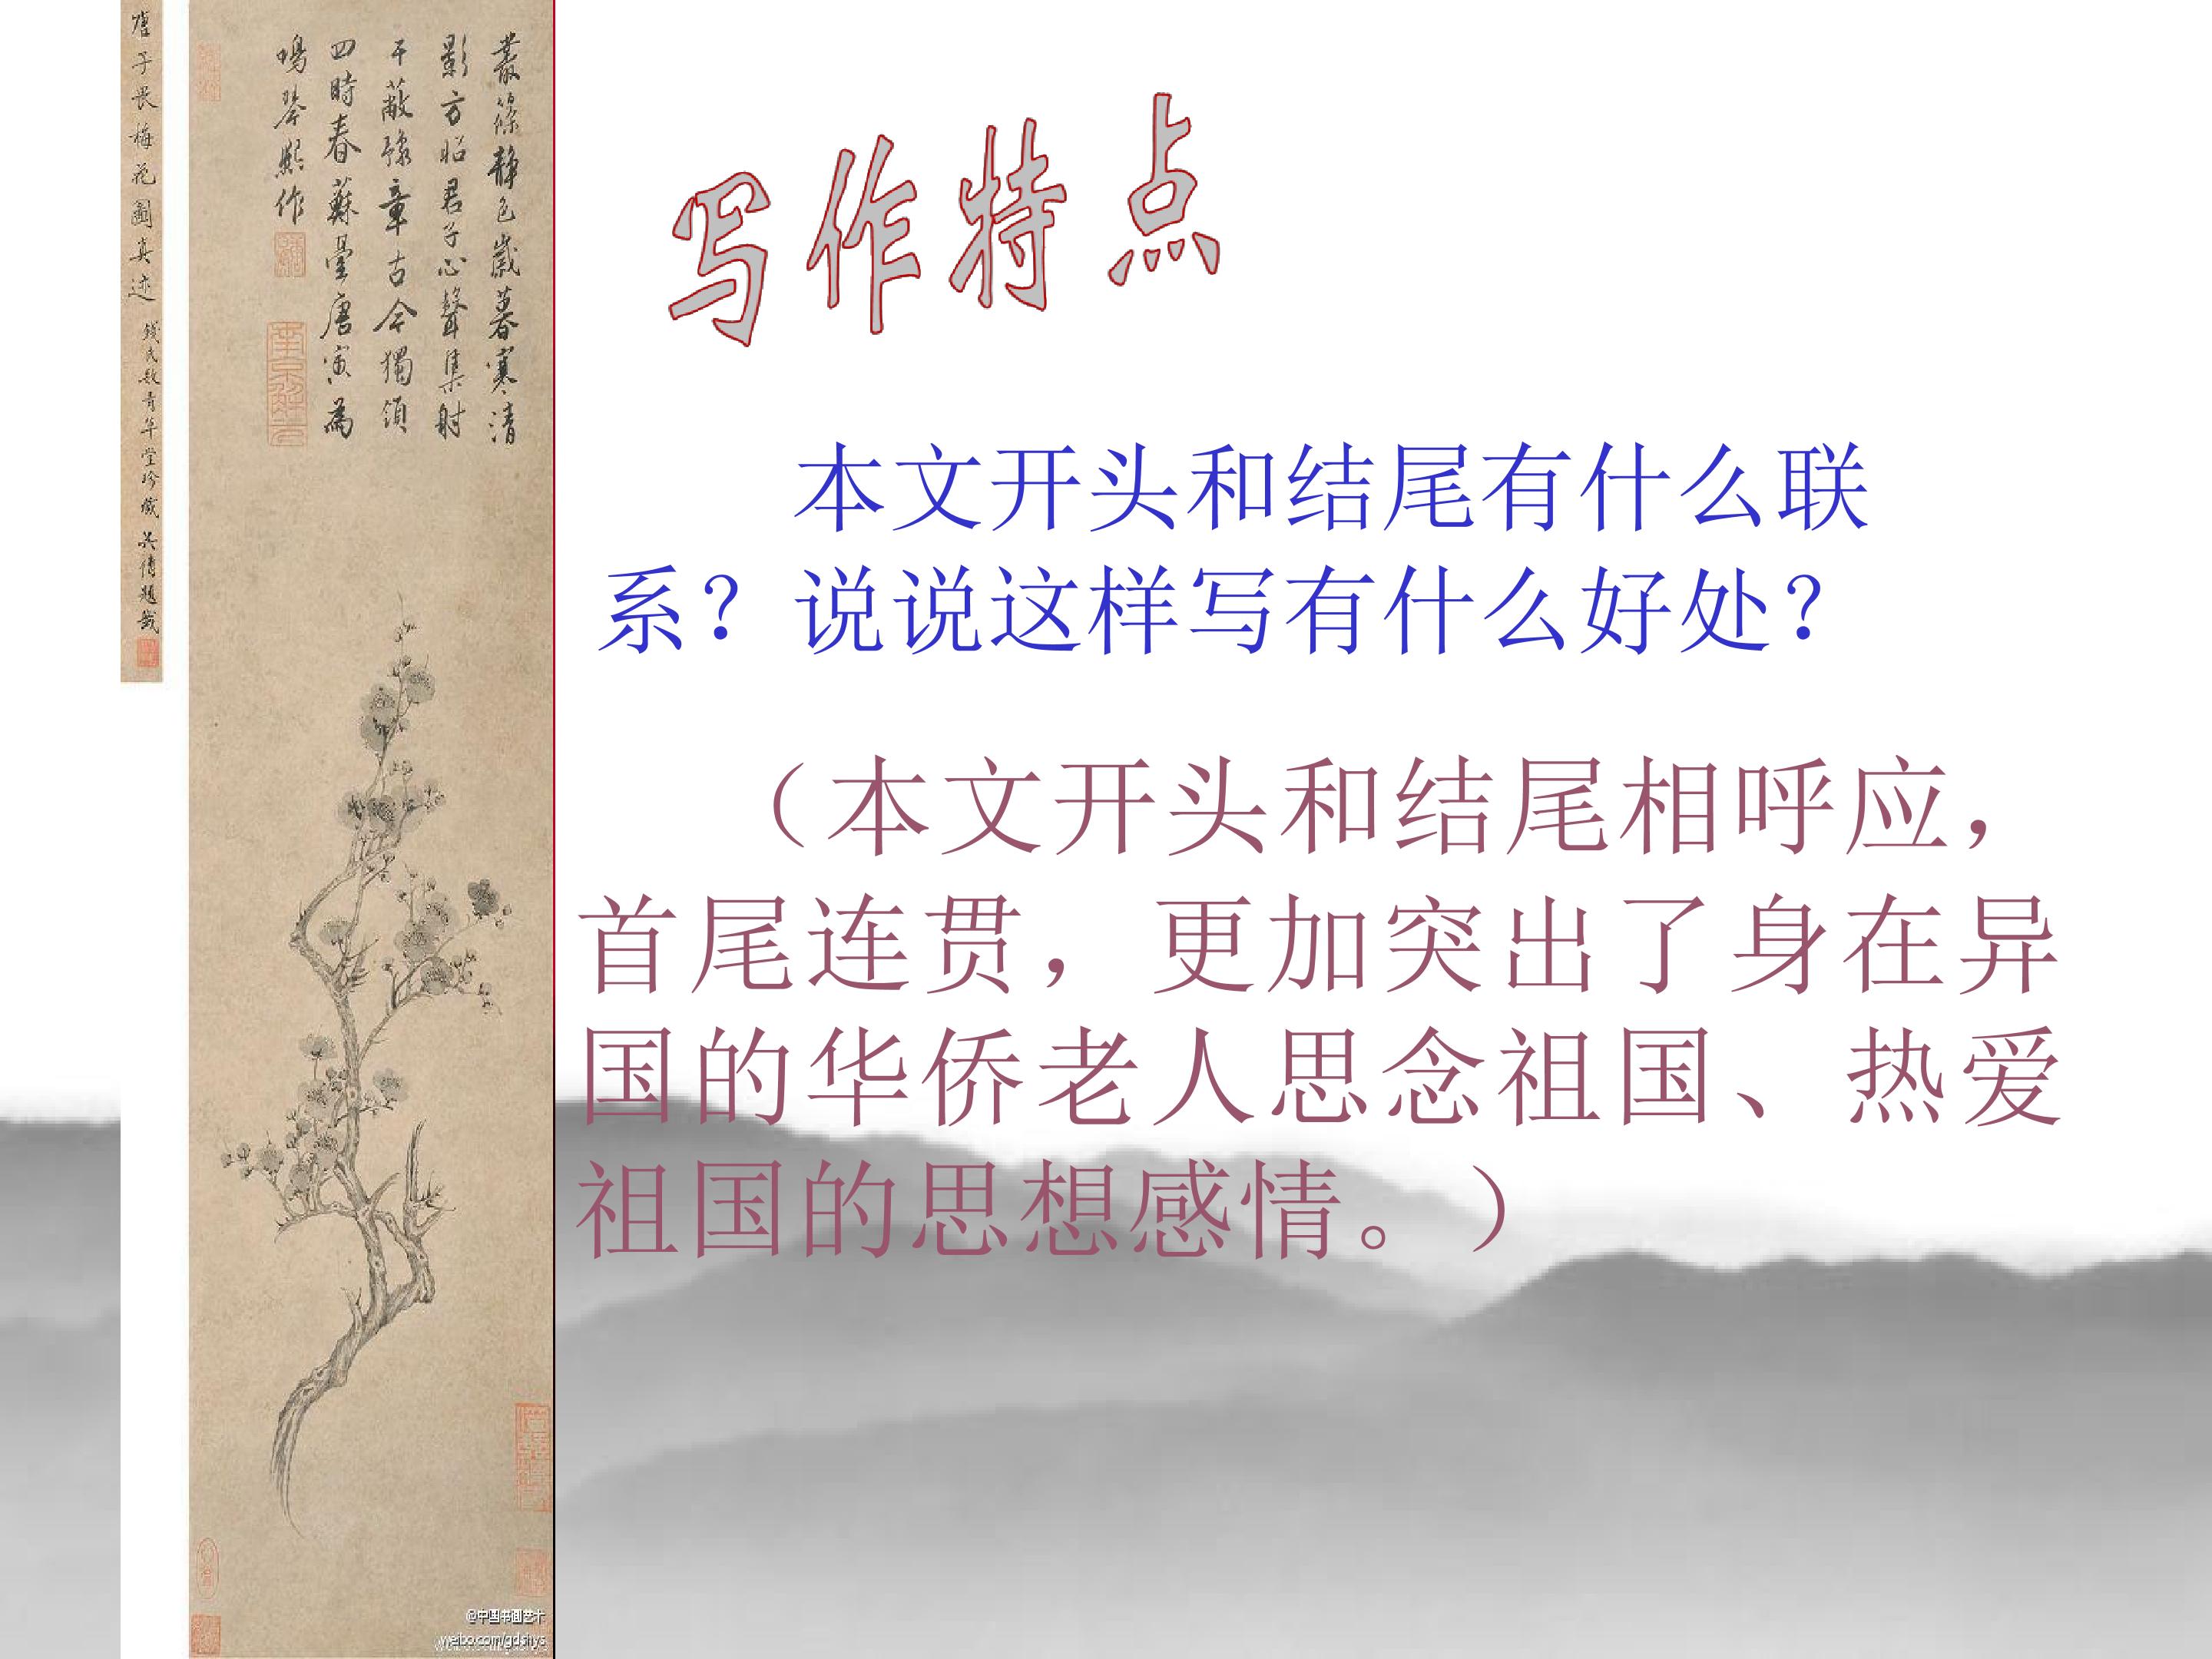 唐子畏梅花圖真迹
叢篠静色歲暮寒清
影方昭君子心聲集射
干蔽豫章古今獨領
四時春蘇臺唐寅為
鳴琴熙作
南京解元
写作特点
本文开头和结尾有什么联
系？说说这样写有什么好处？
（本文开头和结尾相呼应，
首尾连贯，更加突出了身在异
国的华侨老人思念祖国、热爱
祖国的思想感情。）
@中国书画艺术
weibo.com/gdshys